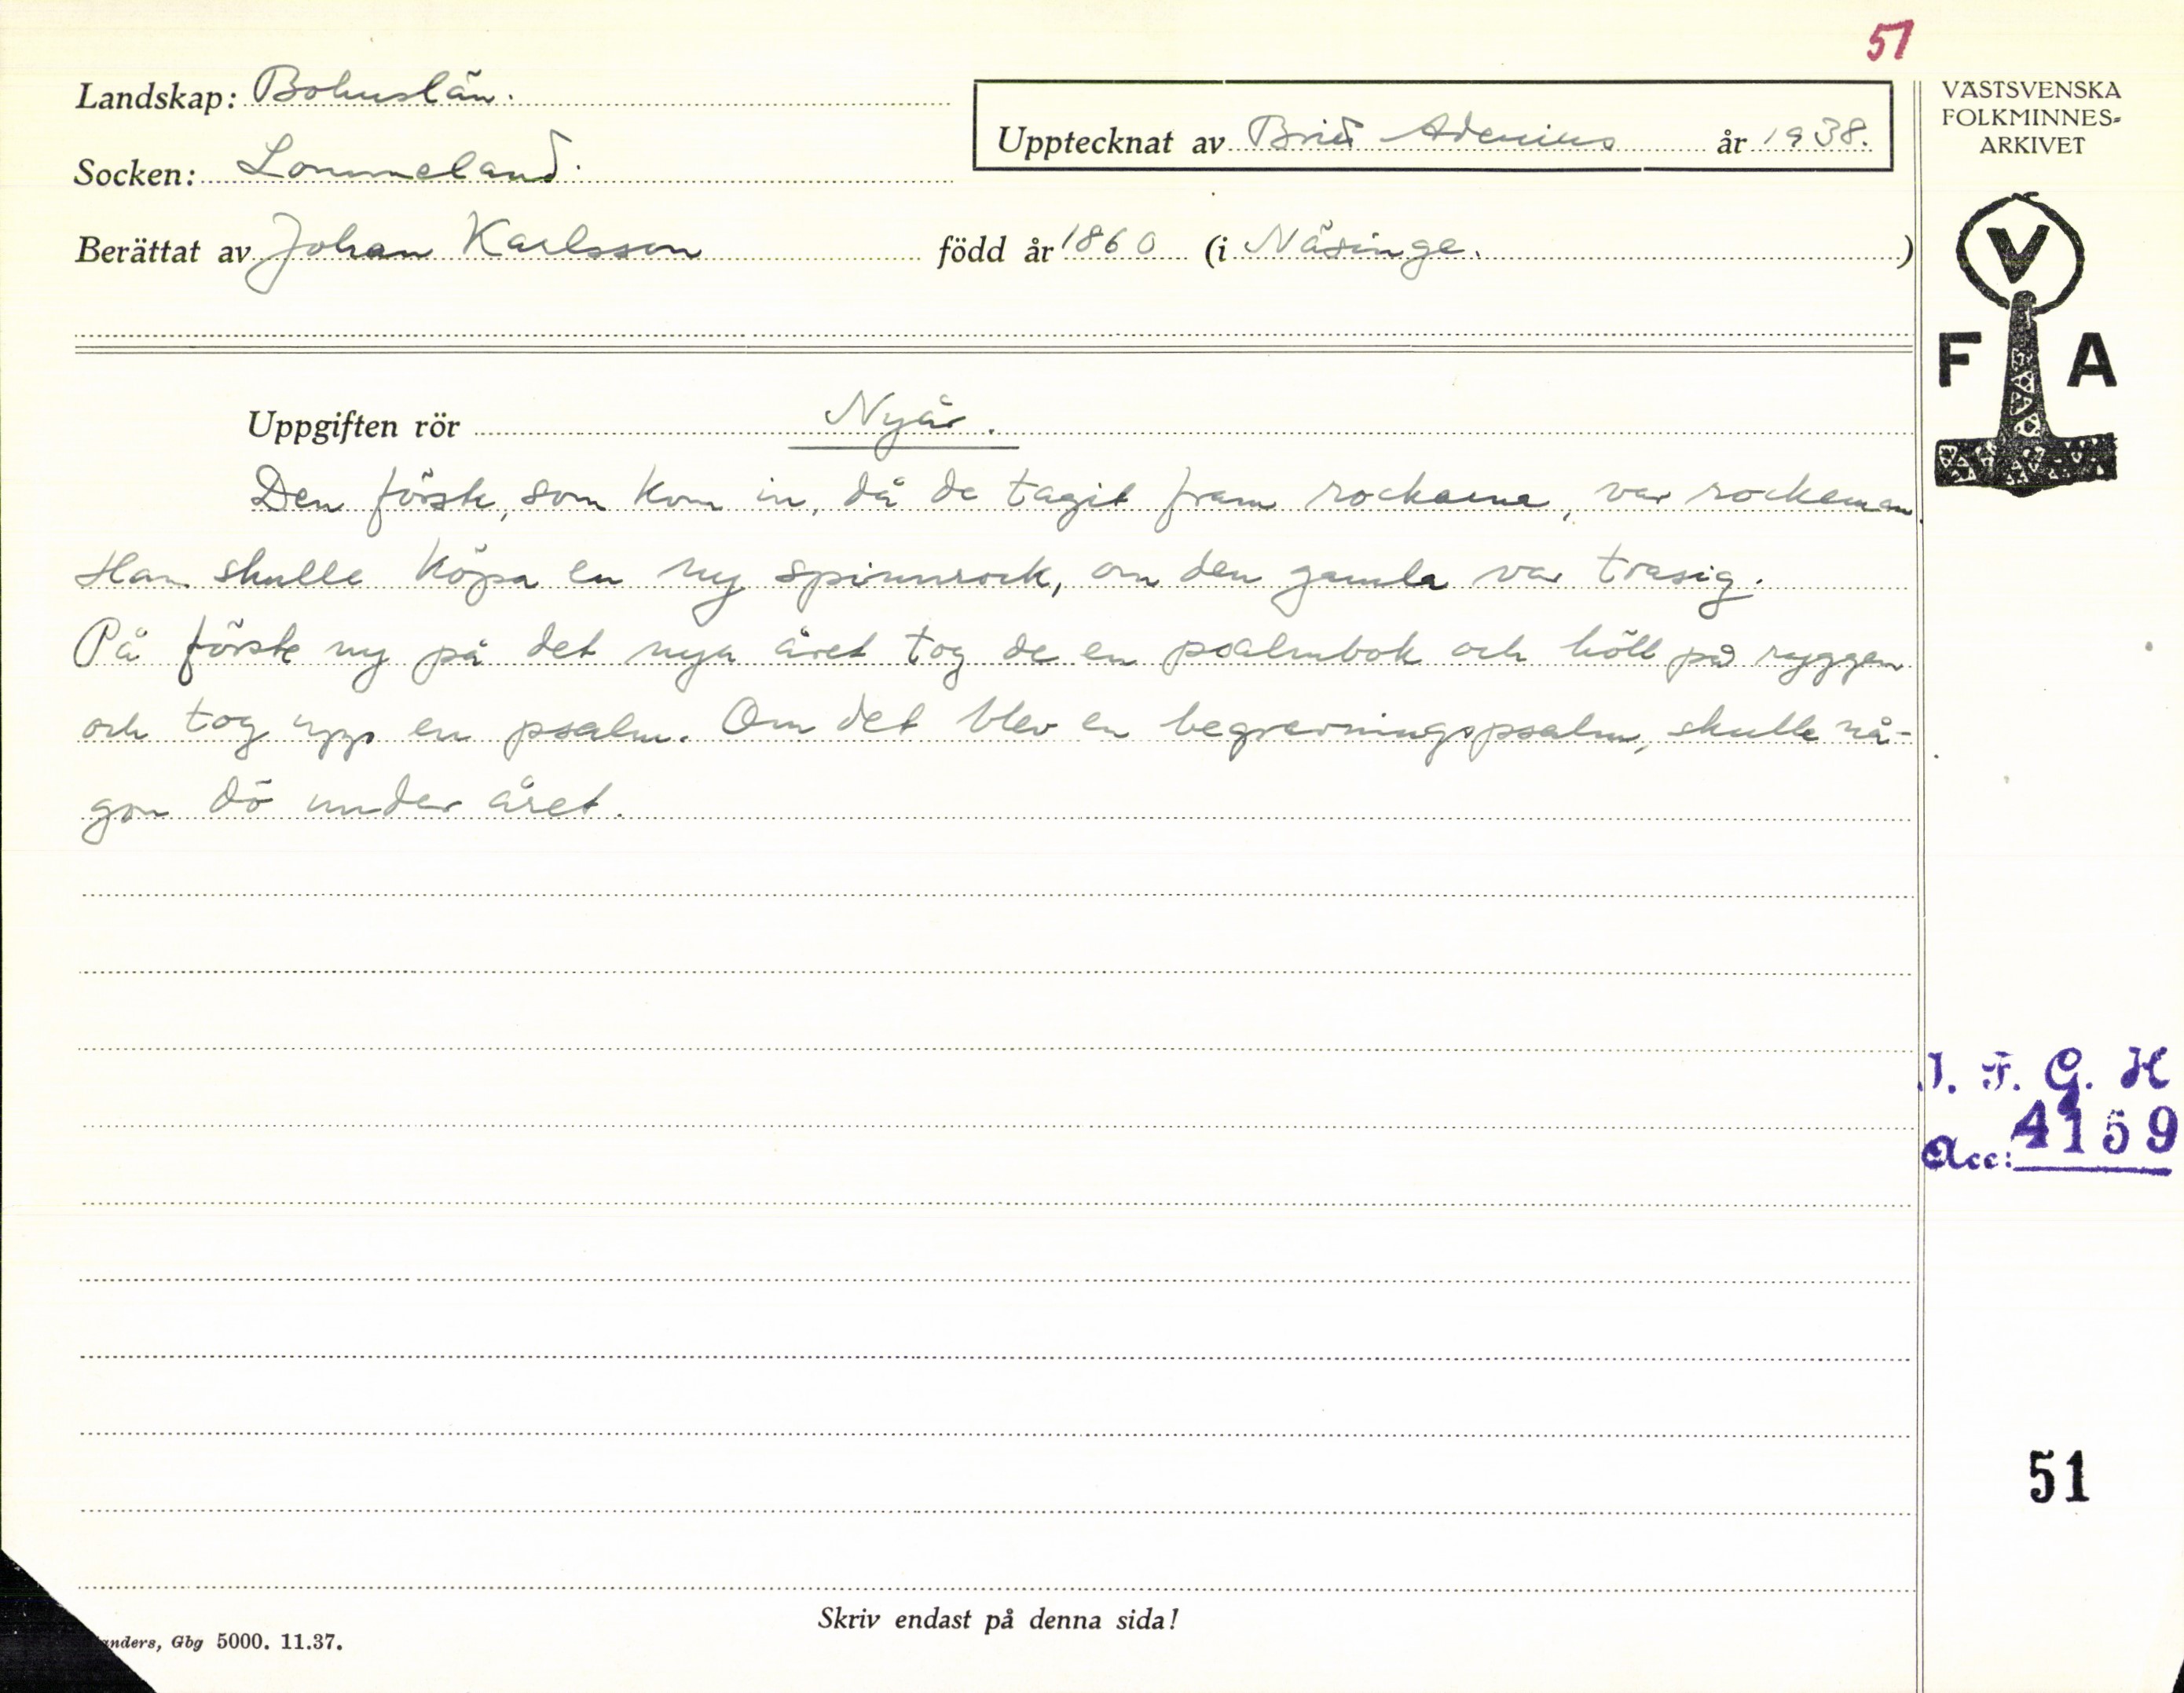 51
Landskap: Bohuslän.
Upptecknat av Brita Adenius år 1938.
Socken: Lommeland.
Berättat av Johan Karlsson född år 1860 (i Näsinge.)
VÄSTSVENSKA
FOLKMINNES-
ARKIVET
V
F A
Uppgiften rör Nyår.
Den förste, som kom in, då de tagit fram rockarna, var rockeman.
Han skulle köpa en ny spinnrock, om den gamla var trasig.
På förste ny på det nya året tog de en psalmbok och höll på ryggen
och tog upp en psalm. Om det blev en begravningspsalm, skulle nå-
gon dö under året.
I. F. G. H
Acc: 4159
51
Skriv endast på denna sida!
anders, Gbg 5000. 11.37.